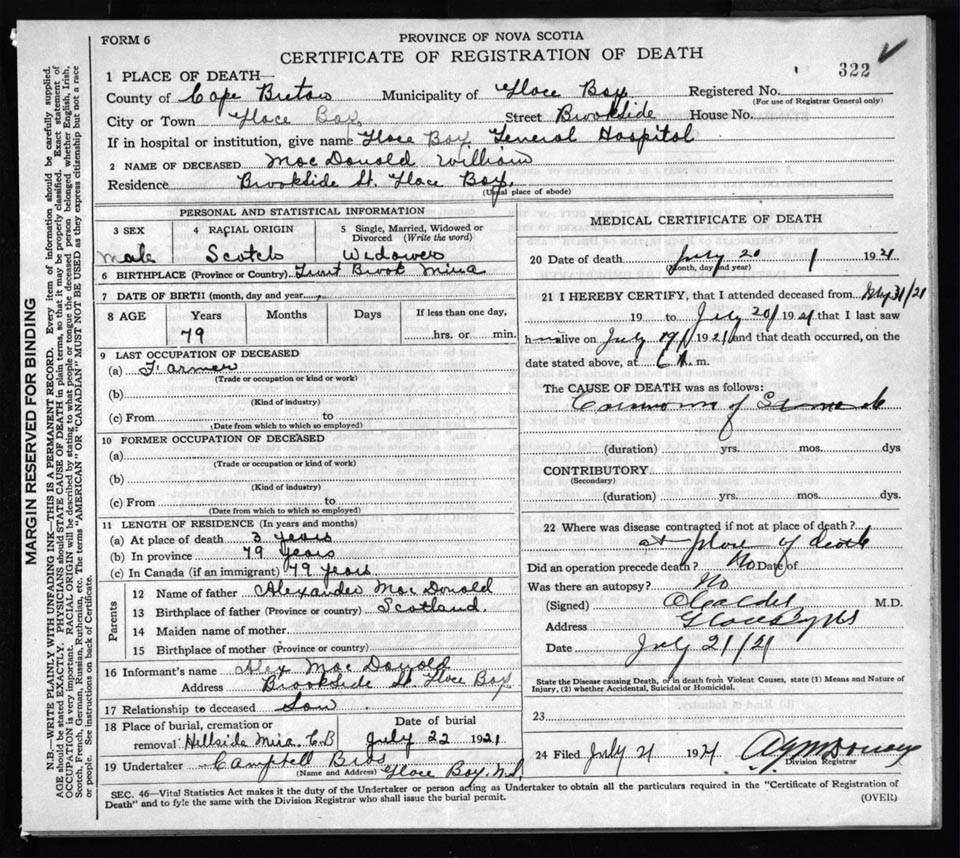 FORM 6
PROVINCE OF NOVA SCOTIA
CERTIFICATE OF REGISTRATION OF DEATH
322
1 PLACE OF DEATH—
County of Cape Breton Municipality of Glace Bay Registered No.
(For use of Registrar General only)
City or Town Glace Bay Street Brookside House No.
If in hospital or institution, give name Glace Bay General Hospital
2 NAME OF DECEASED MacDonald William
Residence Brookside St. Glace Bay.
(Usual place of abode)
PERSONAL AND STATISTICAL INFORMATION
3 SEX 4 RACIAL ORIGIN 5 Single, Married, Widowed or Divorced (Write the word)
male Scotch Widower
6 BIRTHPLACE (Province or Country) Trout Brook Mira
7 DATE OF BIRTH (month, day and year)
8 AGE Years Months Days If less than one day,
79 hrs. or min.
9 LAST OCCUPATION OF DECEASED
(a) Farmer
(Trade or occupation or kind or work)
(b)
(Kind of industry)
(c) From to
(Date from which to which so employed)
10 FORMER OCCUPATION OF DECEASED
(a)
(Trade or occupation or kind of work)
(b)
(Kind of industry)
(c) From to
(Date from which to which so employed)
11 LENGTH OF RESIDENCE (In years and months)
(a) At place of death 3 years
(b) In province 79 years
(c) In Canada (if an immigrant) 79 years
Parents
12 Name of father Alexander MacDonald
13 Birthplace of father (Province or country) Scotland.
14 Maiden name of mother
15 Birthplace of mother (Province or country)
16 Informant's name Alex MacDonald
Address Brookside St. Glace Bay
17 Relationship to deceased Son
18 Place of burial, cremation or removal Hillside Mira. C.B Date of burial July 22 1921
19 Undertaker Campbell Bros
(Name and Address) Glace Bay. N.S.
MEDICAL CERTIFICATE OF DEATH
20 Date of death July 20 1921
(Month, day and year)
21 I HEREBY CERTIFY, that I attended deceased from 31/21
19 to July 20 1921 that I last saw
h alive on July 19 1921 and that death occurred, on the
date stated above, at m.
The CAUSE OF DEATH was as follows:
Carcinoma of Stomach
(duration) yrs. mos. dys
CONTRIBUTORY
(Secondary)
(duration) yrs. mos. dys.
22 Where was disease contracted if not at place of death?
at place of death
Did an operation precede death? No Date of
Was there an autopsy? No
(Signed) M.D.
Address Glace Bay NS
Date July 21/21
State the Disease causing Death, or in death from Violent Causes, state (1) Means and Nature of
Injury, (2) whether Accidental, Suicidal or Homicidal.
23
24 Filed July 21 1921
Division Registrar
SEC. 46—Vital Statistics Act makes it the duty of the Undertaker or person acting as Undertaker to obtain all the particulars required in the "Certificate of Registration of
Death" and to fyle the same with the Division Registrar who shall issue the burial permit.
(OVER)
MARGIN RESERVED FOR BINDING
N.B.—WRITE PLAINLY WITH UNFADING INK—THIS IS A PERMANENT RECORD. Every item of information should be carefully supplied.
AGE should be stated EXACTLY. PHYSICIANS should STATE CAUSE OF DEATH in plain terms, so that it may be properly classified. Exact statement of
OCCUPATION is very important. RACIAL ORIGIN will be described by stating to what people or tongue the deceased person belonged, whether English, Irish,
Scotch, French, German, Russian, Ruthenian, etc. The terms "AMERICAN" or "CANADIAN" MUST NOT BE USED as they express citizenship but not a race
or people. See instructions on back of Certificate.